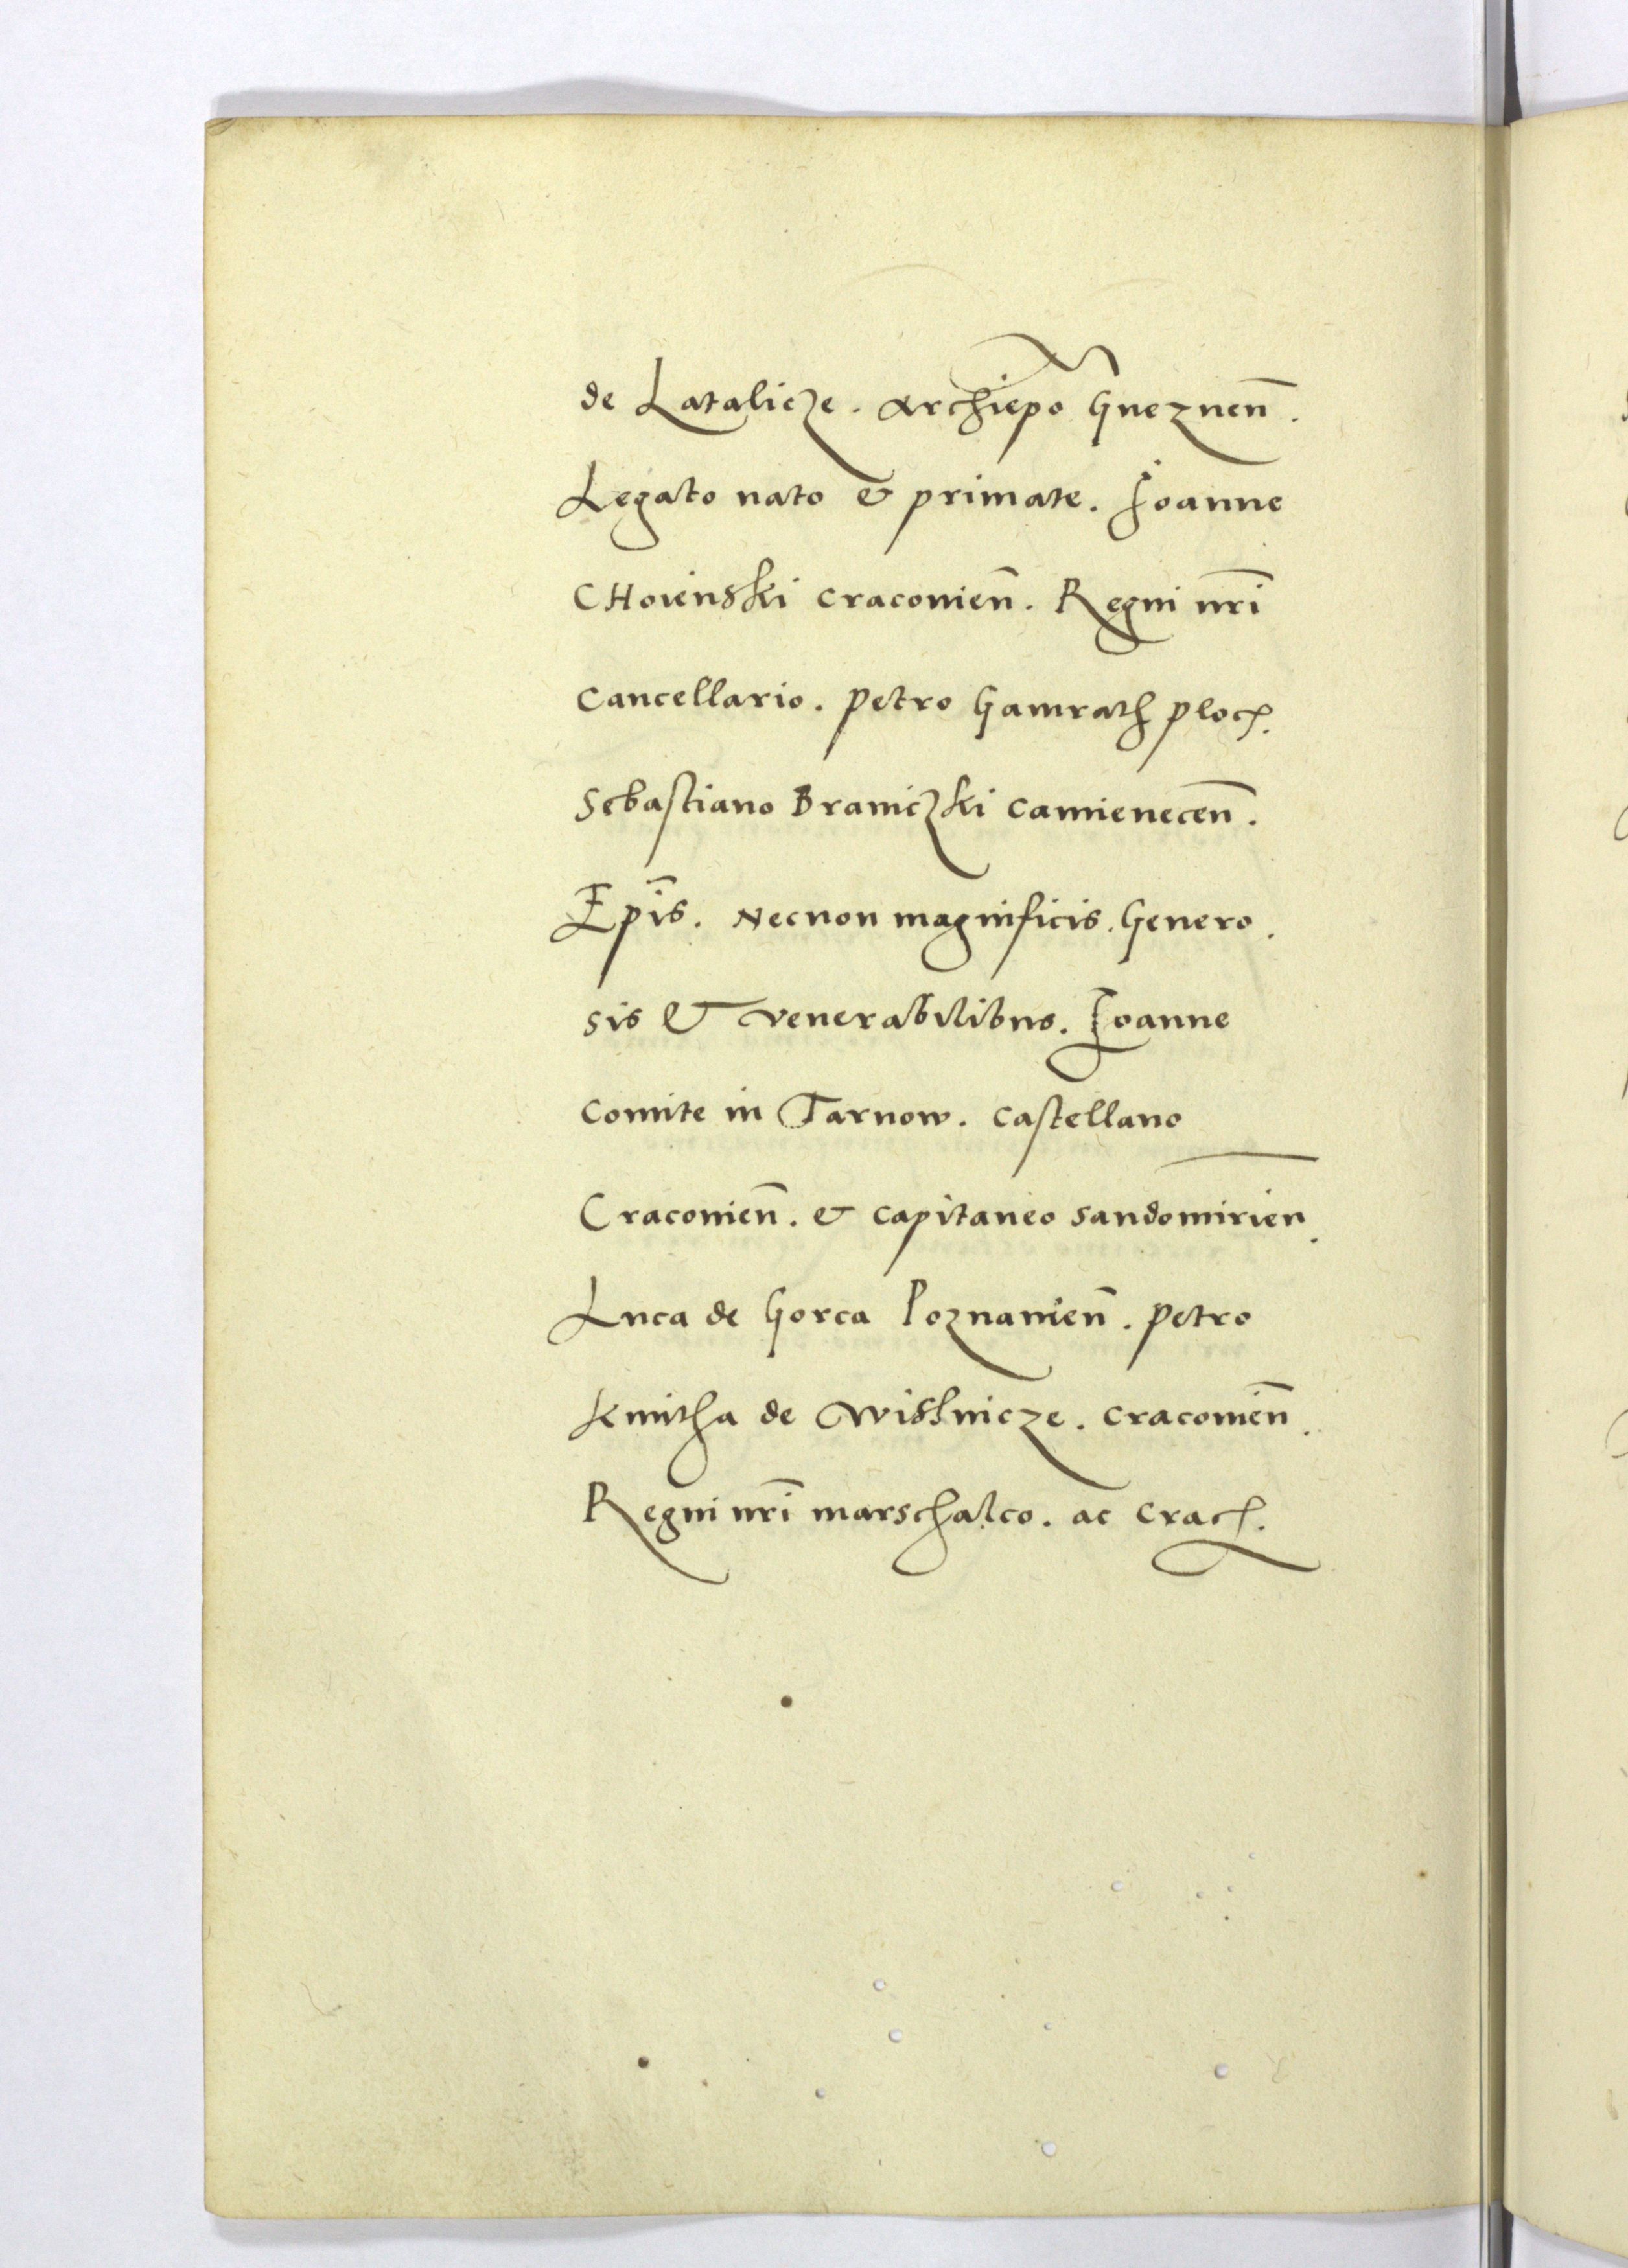 de Latalicze. archiepo Gneznen̄.
Legato nato & primate. Joanne
CHoienski craconien̄. Regni nr̄i
Cancellario. petro Gamrath ploc̄.
Sebastiano Braniczki camienecen̄.
Ep̄is. Necnon magnificis. Genero.
sis & venerabilibus. Joanne
Comite in Tarnow. castellano
Craconien̄. & capitaneo sandomirien̄.
Luca de Gorca Poznanien̄. petro
kmitha de wisknicze. craconien̄.
Regni nr̄i marschalco. ac crac̄.